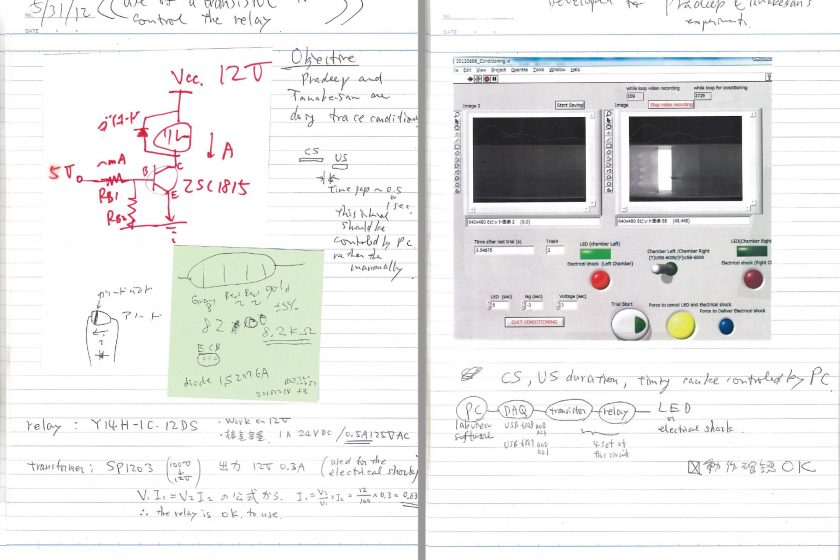 5/31/12 (( use of a transistor to
control the relay ))
DATE
Objective
Pradeep and
Tanakesan are
doing trace conditioning
Vcc. 12V
A
5V
mA
B
C
E
2SC1815
RB1
RB2
CS
US
time gap ~ 0.5
or
1 sec.
This interval
should be
controlled by PC
rather than
manually
Gray Red Red gold
8 2 2 ±5%
8.2kΩ
E C B
diode 1S2076A
カソードマーク
relay : Y14H-1C-12DS
・work on 12V
・接点容量 1A 24VDC / 0.5A 125VAC
transformer : SP1203 (100V ↓ 12V) 出力 12V 0.3A (used for the
electrical shock)
V₁I₁=V₂I₂ の公式から I₁ = V₂/V₁ × I₂ = 12/100 × 0.3 = 0.03
∴ the relay is OK to use.
Developed for Pradeep Elmankegan's
experiments
NO.
DATE
20120606_Conditioning.vi
File Edit View Project Operate Tools Window Help
while loop video recording
while loop for conditioning
109
2729
Image 2
Start Saving
Image
Stop video recording
640x480 8ビット画像 2 (0,0)
640x480 8ビット画像 68 (48,448)
Time after last trial (s)
Trial#
LED (chamber Left)
Chamber Left /Chamber Right
LED(Chamber Right
3.54875
[T]USB-6008/[F]USB-6009
Electrical shock (Left Chamber)
Electrical shock (Right C
LED (sec)
lag (sec)
Voltage (sec)
5
-3
3
QUIT CONDITIONING
Trial Start
Force to cancel LED and Electrical shock
Force to Deliver Electrical shock
CS, US duration, timing can be controlled by PC.
PC DAQ transistor relay LED
Labview
software
or
electrical shock.
4 set of
this circuit
動作確認 OK